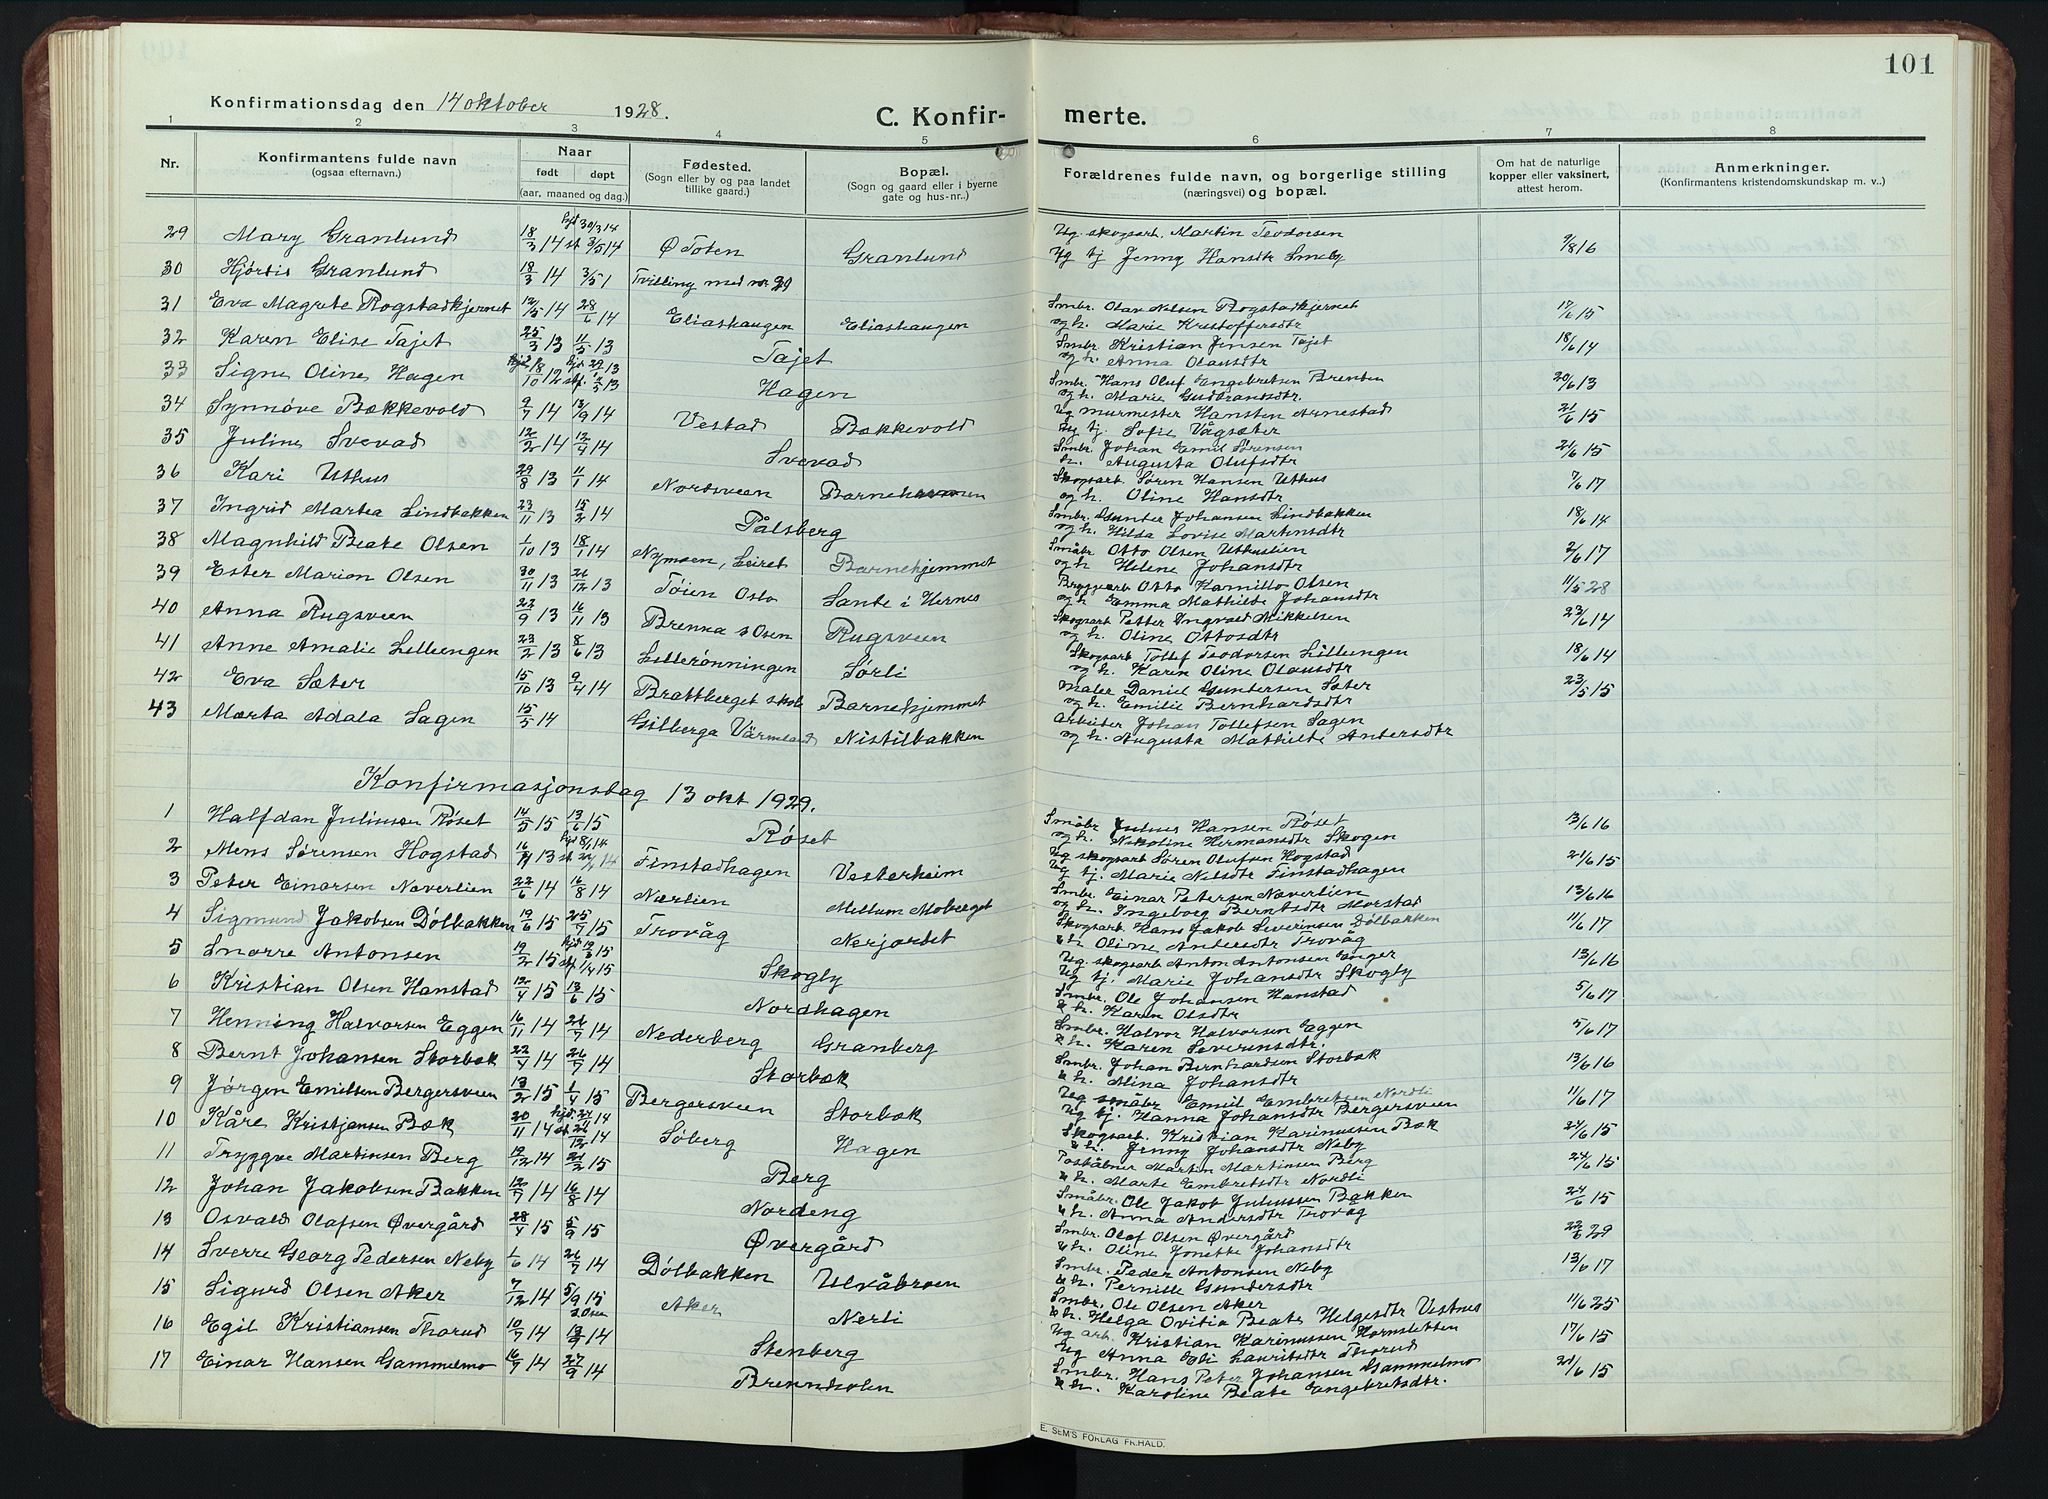 101
Konfirmationsdag den 14 oktober 1928.
C. Konfirmerte.
1 2 3 4 5 6 7 8
Nr. Konfirmantens fulde navn (ogsaa efternavn). Naar født døpt (aar, maaned og dag.) Fødested. (Sogn eller by og paa landet tillike gaard.) Bopæl. (Sogn og gaard eller i byerne gate og hus-nr..) Forældrenes fulde navn, og borgerlige stilling (næringsvei) og bopæl. Om hat de naturlige kopper eller vaksinert, attest herom. Anmerkninger. (Konfirmantens kristendomskundskap m. v..)
29 Mary Granlund 18/3 14 hjd 30/3 14 st 3/5 14 Ø Toten Granlund Ug. skogsarb. Martin Teodorsen Ug tj Jenny Hansdtr Smeby 9/8 16
30 Hjørdis Granlund 18/3 14 3/5 1 Tvilling med nr 29
31 Eva Magrete Rogstadkjernet 12/5 14 28/6 14 Eliashaugen Eliashaugen Smbr. Olav Nilsen Rogstadkjernet og h. Marie Kristoffersdtr 17/6 15
32 Karen Elise Tajet 25/3 13 11/5 13 Tajet Smbr. Kristian Jensen Tajet og h. Anna Olausdtr 18/6 14
33 Signe Oline Hagen 18/10 12 Hagen Smbr. Hans Oluf Engebretsen Brenden og h. Marie Gudbrandsdtr. 20/6 13
34 Synnøve Bækkevold 9/7 14 13/9 14 Vestad Bækkevold Ug murmester Hansten Arnestad Ug tj. Sofie Vågsæter 21/6 15
35 Juline Svevad 12/2 14 12/4 14 Svevad Smbr. Johan Emil Sørensen h. Augusta Olufsdtr 21/6 15
36 Kari Uthus 29/8 13 11/1 14 Nordsveen Skogsarb. Søren Hansen Uthus og h. Oline Hansdtr 7/6 17
37 Ingrid Martea Lindbakken 23/11 13 15/2 14 Pålsberg Smbr. Gunder Johansen Lindbakken og h. Hilda Lovise Martinsdtr 18/6 14
38 Magnhild Beate Olsen 1/10 13 18/1 14 Nymoen, Leiret Barnehjemmet Småbr Otto Olsen Uthuslien og h Helene Johansdtr 2/6 17
39 Ester Marion Olsen 30/11 13 26/12 13 Tøien Oslo Sante i Hernes Bryggearb Otto Kamillo Olsen og h Emma Mathilde Johansdtr 11/5 28
40 Anna Rugsveen 22/9 13 16/11 13 Brenna s Osen Rugsveen Skogsarb Petter Ingvald Mikkelsen og h. Oline Ottosdtr 23/6 14
41 Anne Amalie Lilleengen 23/2 13 8/6 13 Lillerønningen Sørli Skogsarb Tollef Teodorsen Lilleengen og h. Karen Oline Olausdtr 18/6 14
42 Eva Sæter 15/10 13 9/4 14 Brattberget skole Barnehjemmet Maler Daniel Gundersen Sæter og h. Emilie Bernhardsdtr 23/5 15
43 Mærta Adala Sagen 15/5 14 Gilberga Värmland Nistilbakken Arbeider Johan Tollefsen Sagen og h. Augusta Mathilde Andersdtr
Konfirmasjonsdag 13 okt 1929.
1 Halfdan Juliusen Røset 14/5 15 13/6 15 Røset Småbr Julius Hansen Røset og h. Nikoline Hermansdtr Skogen 13/6 16
2 Mens Sørensen Hogstad Finstadhagen Vesterheim Ug skogsarb Søren Olufsen Hogstad Ug tj. Marie Nilsdtr Finstadhagen 21/6 15
3 Peter Einarsen Næverlien 22/6 14 16/8 14 Nærlien Mellum Moberget Smbr. Einar Petersen Næverlien og h. Ingeborg Berntsdtr Morstad 13/6 16
4 Sigmund Jakobsen Dølbakken 19/6 15 25/7 15 Trovåg Nerjordet Skogsarb. Hans Jakob Severinsen Dølbakken & h. Oline Andersdtr Trovåg 11/6 17
5 Snorre Antonsen 19/2 15 st. 1/4 15 Skogly Ug. skogsarb Anton Antonsen Enger Ug tj. Marie Johansdtr Skogly 13/6 16
6 Kristian Olsen Hanstad 12/4 15 13/6 15 Nordhagen Smbr. Ole Johansen Hanstad & h. Karen Olsdtr 5/6 17
7 Henning Halvorsen Eggen 16/11 14 26/7 14 Nederberg Granberg Smbr. Halvor Halvorsen Eggen & h. Karen Severinsdtr. 5/6 17
8 Bernt Johansen Storbæk 22/4 14 26/7 14 Storbæk Smbr. Johan Bernhardsen Storbæk & h. Mina Johansdtr 13/6 16
9 Jørgen Emilsen Bergersveen 13/2 15 1/4 15 Bergersveen Storbæk Ug småbr Emil Embretsen Nordli Ug tj. Hanna Johansdtr Bergersveen 11/6 17
10 Kåre Kristjansen Bæk 20/11 14 Søberg Hagen Skogsarb. Kristian Karinussen Bæk & h. Jenny Johansdtr Neby 24/6 15
11 Tryggve Martinsen Berg 19/12 14 21/2 15 Berg Poståbner Martin Martinsen Berg & h. Marte Embretsdtr Nordli 24/6 15
12 Johan Jakobsen Bakken 12/7 14 16/8 14 Nordeng Småbr. Ole Jakob Juliussen Bakken & h. Anna Andersdtr Trovåg 24/6 15
13 Osvald Olafsen Øvergård 28/4 15 5/9 15 Øvergård Smbr. Olaf Olsen Øvergård & h. Oline Jonette Johansdtr 22/6 29
14 Sverre Georg Pedersen Neby 1/6 14 26/7 14 Dølbakken Ulvåbroen Smbr. Peder Antonsen Neby & h. Pernille Gundersdtr 13/6 17
15 Sigurd Olsen Aker 7/12 14 5/9 15 s Osen Aker Nerli Smbr. Ole Olsen Aker & h. Helga Ovitia Beate Helgesdtr Vestnes 11/6 25
16 Egil Kristiansen Thorud 10/7 14 13/9 14 Stenberg Ug arb. Kristian Karinussen Kornsletten Ug Anna Eli Lauritsdtr Thorud 17/6 15
17 Einar Hansen Gammelmo 16/9 14 27/9 14 Brennholen Smbr. Hans Peter Johansen Gammelmo & h. Karoline Beate Engebretsdtr. 21/6 15
E. SEM'S FORLAG FR.HALD.